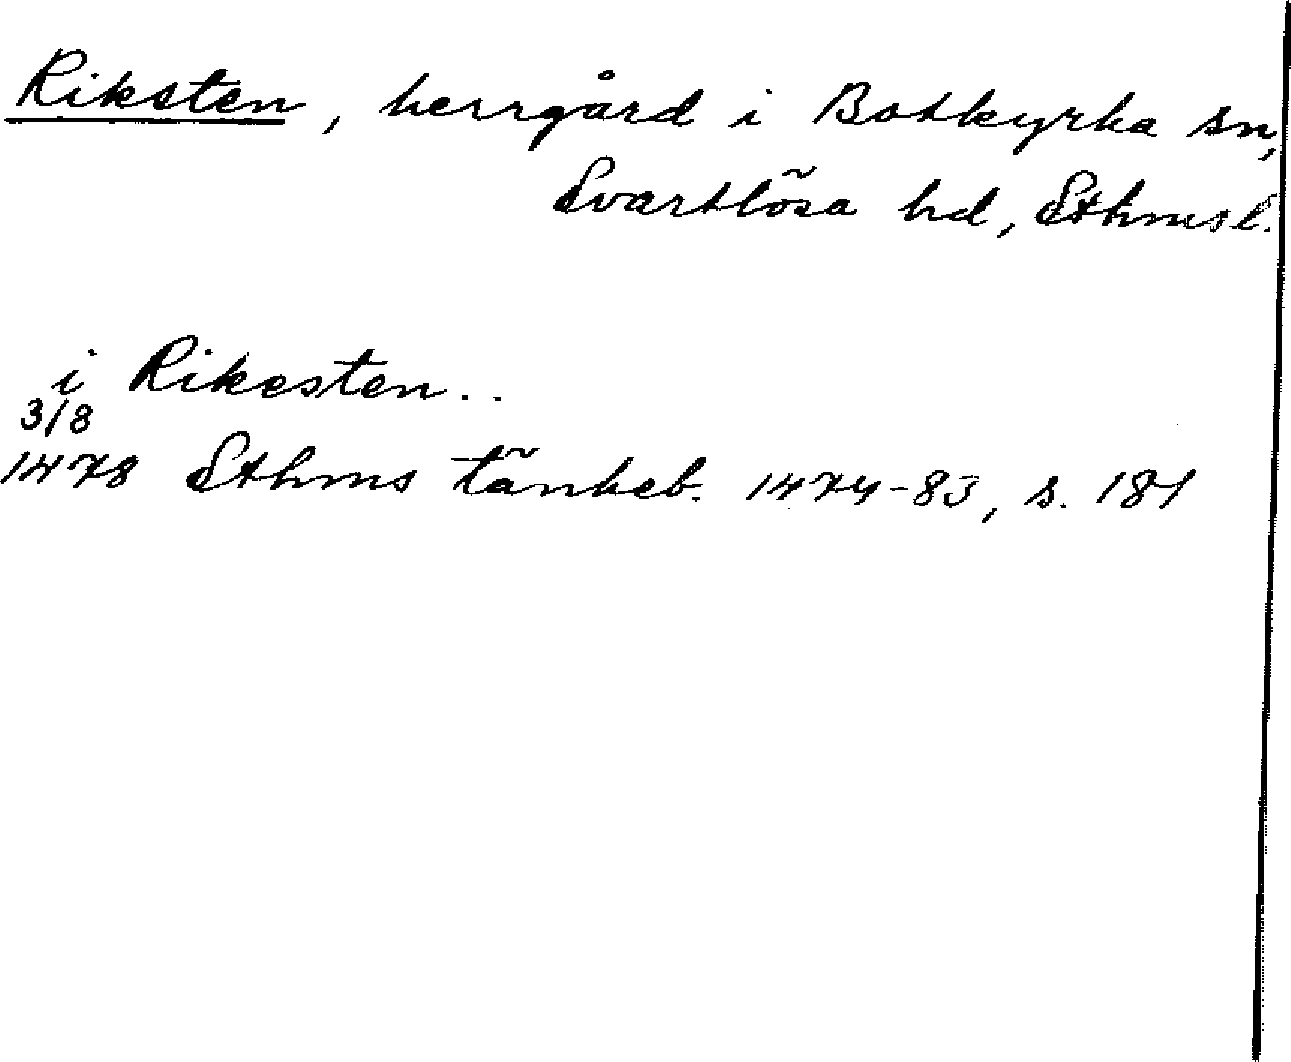 Riksten, herrgård i Botkyrka sn,
Svartlösa hd, Sthmsl.
i Rikesten..
3/8
1478 Sthms tänkeb. 1474-83, s. 181